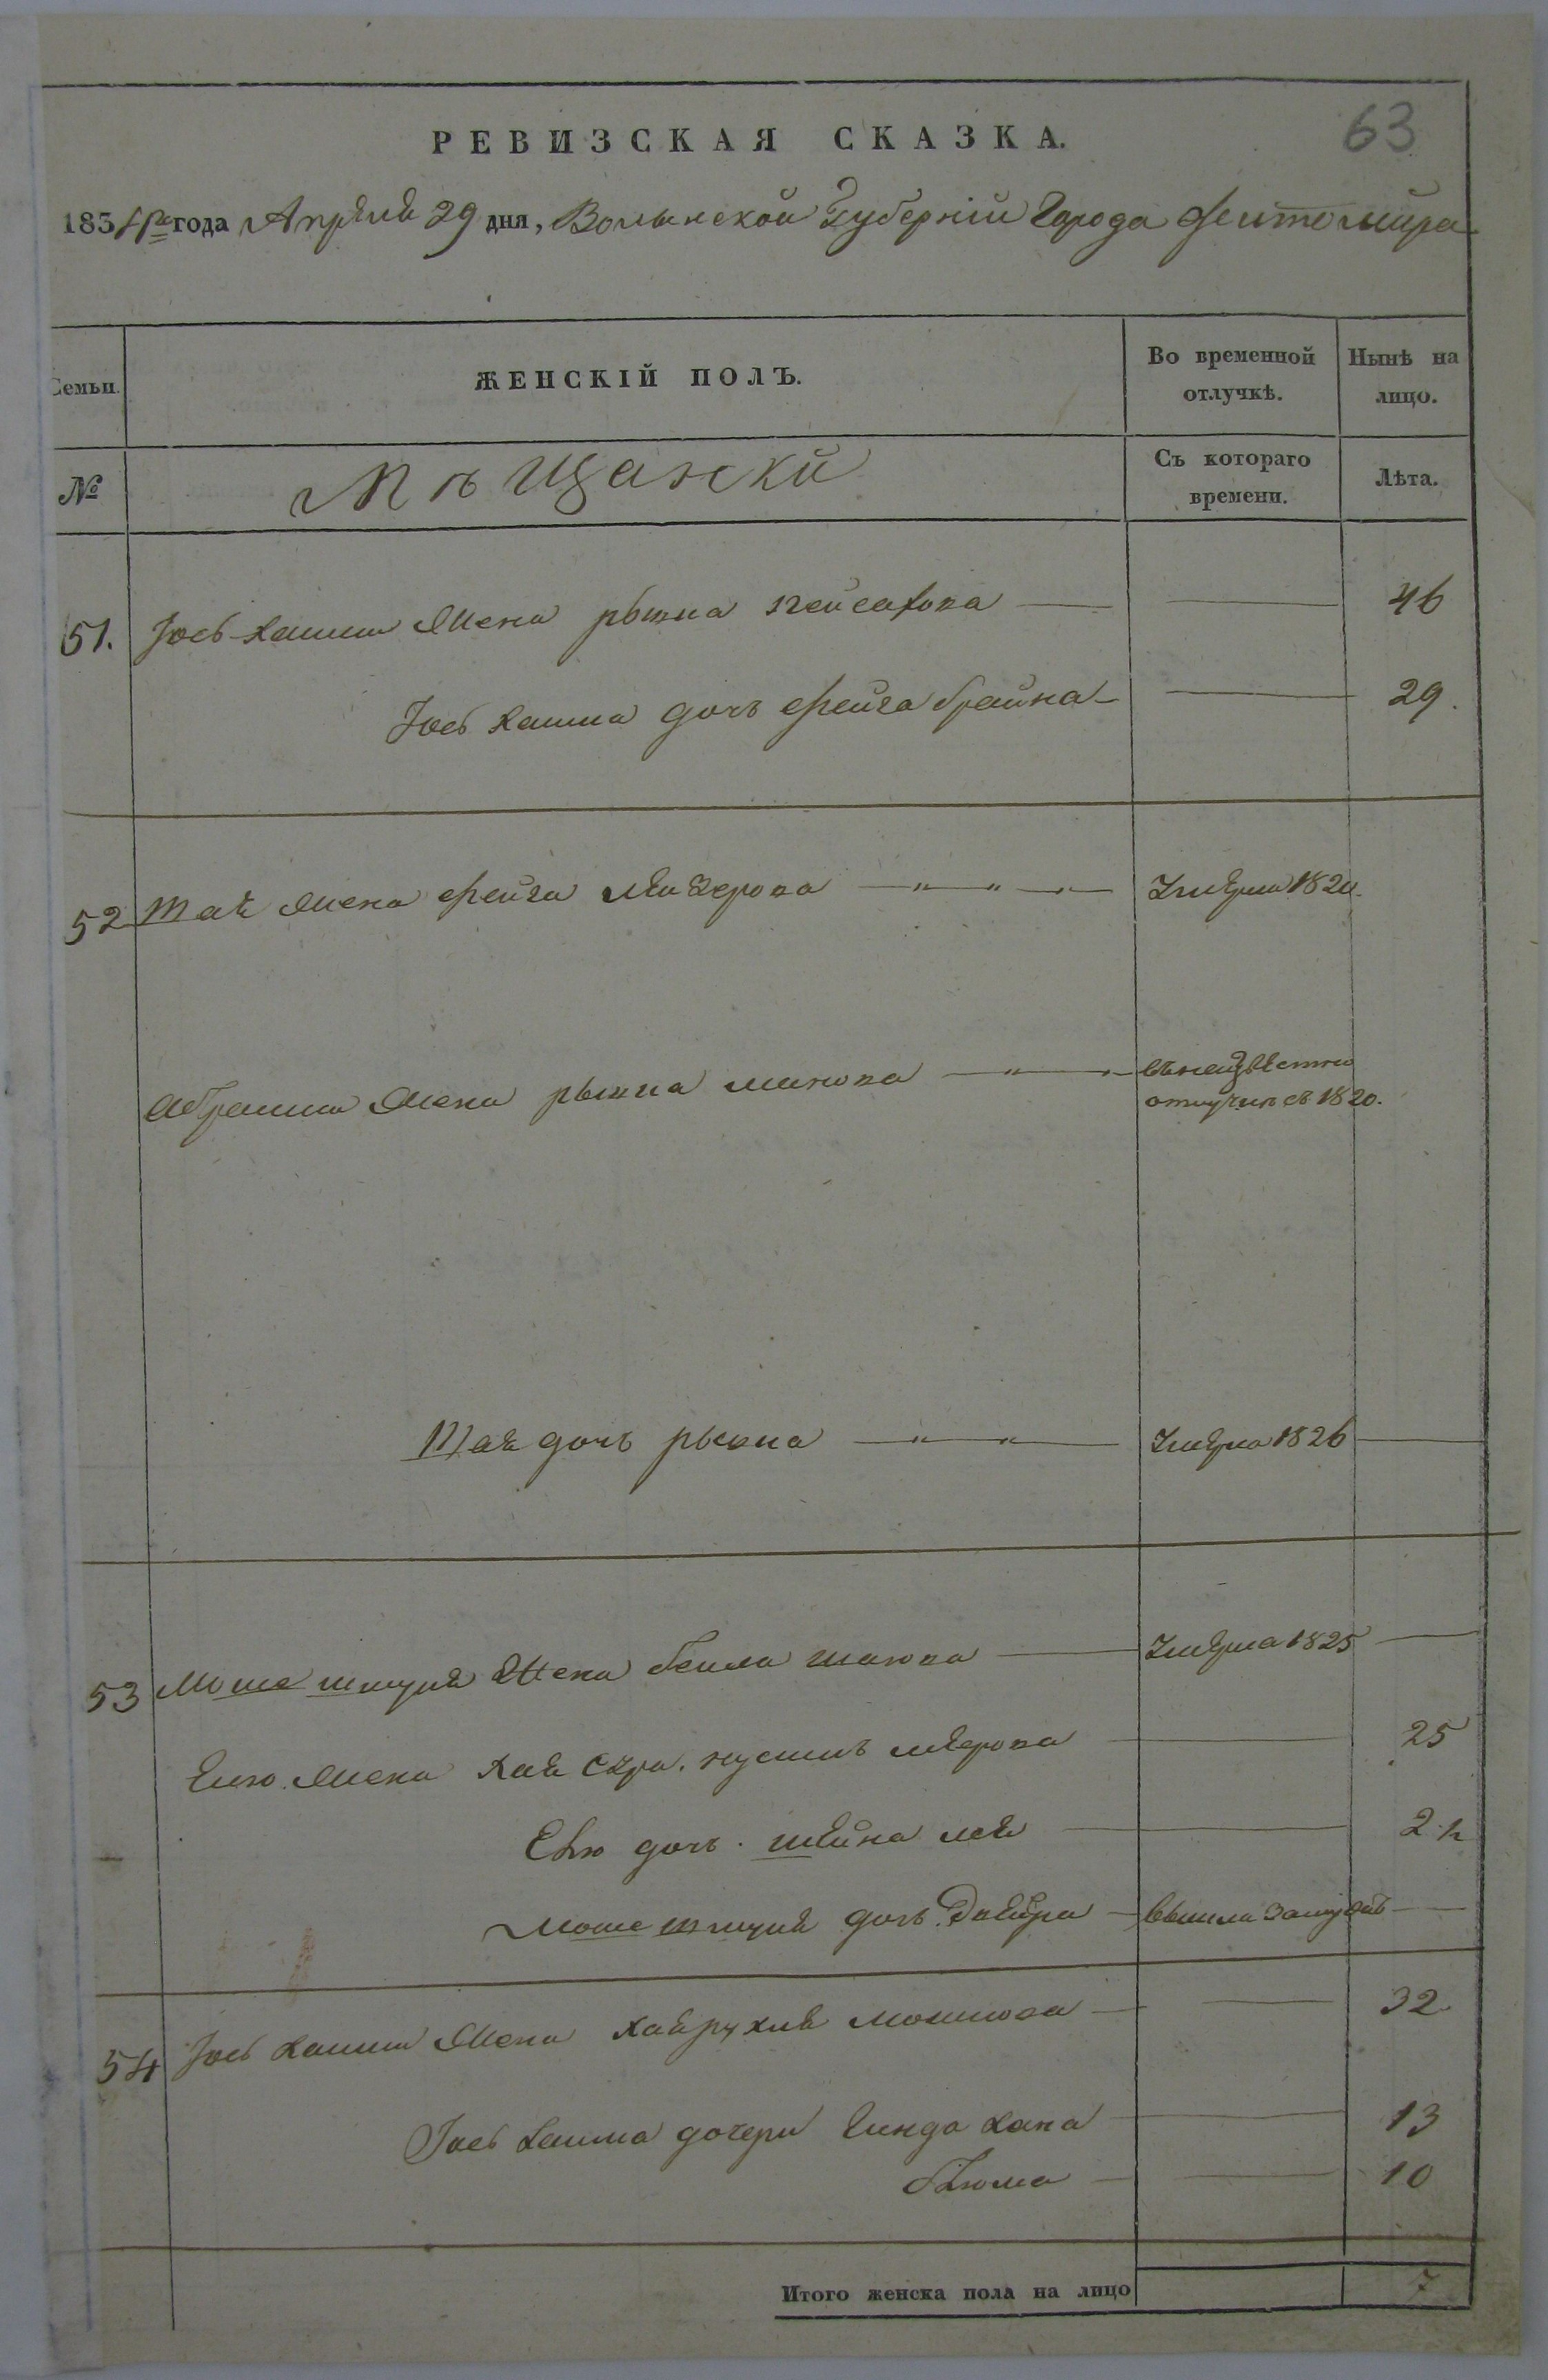 РЕВИЗСКАЯ СКАЗКА.
63
1834го года Апреля 29 дня, Волынской Губернiи Города Житомира
Семьи.
ЖЕНСКIЙ ПОЛЪ.
Во временной отлучкѣ.
Нынѣ на лицо.
№
Мѣщански
Съ котораго времени.
Лѣта.
51. Iось Хаима жена рывка 46
Iось Хаима дочь фейга брайна 29.
52 Тая жена фейга лейзерова умерла 1820.
Абрама жена рывка въ неизвестно
отлучке съ 1820.
Тая дочь рывка умерла 1826
53 Моше шмуля жена бейла умерла 1825
Ево жена Хая Сура 25
Ево дочь шейна лея 2 1/2
Моше шмуля дочь Двейра вышла замужъ
54 Iось Хаима жена Хая рухля мошкова 32
Iось Хаима дочери гинда хана 13
блюма 10
Итого женска пола на лицо 7